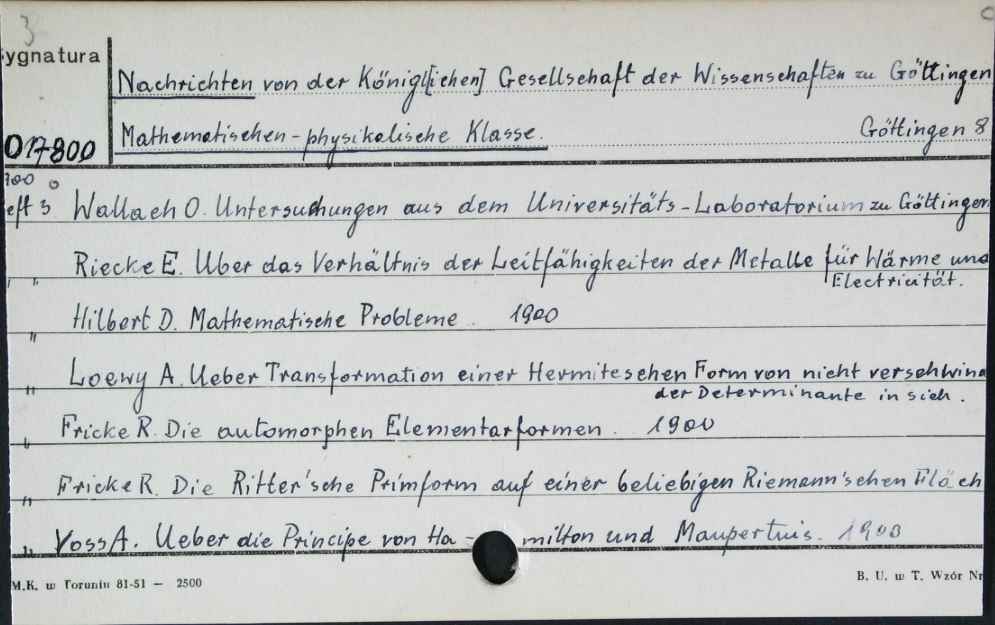 3
ygnatura
Nachrichten von der Königl[ichen] Gesellschaft der Wissenschaften zu Göttingen
Mathematischen-physikalische Klasse. Göttingen 8
017800
700
eft 3 Wallach O. Untersuchungen aus dem Universitäts-Laboratorium zu Göttingen
" Riecke E. Uber das Verhältnis der Leitfähigkeiten der Metalle für Wärme und
Electricität.
" Hilbert D. Mathematische Probleme. 1900
" Loewy A. Ueber Transformation einer Hermiteschen Form von nicht verschwin
der Determinante in sich.
" Fricke R. Die automorphen Elementarformen. 1900
" Fricke R. Die Ritter'sche Primform auf einer beliebigen Riemann'schen Fläch
" Voss A. Ueber die Principe von Ha- milton und Maupertuis. 1900
M.K. w Toruniu 81-51 — 2500 B. U. w T. Wzór Nr